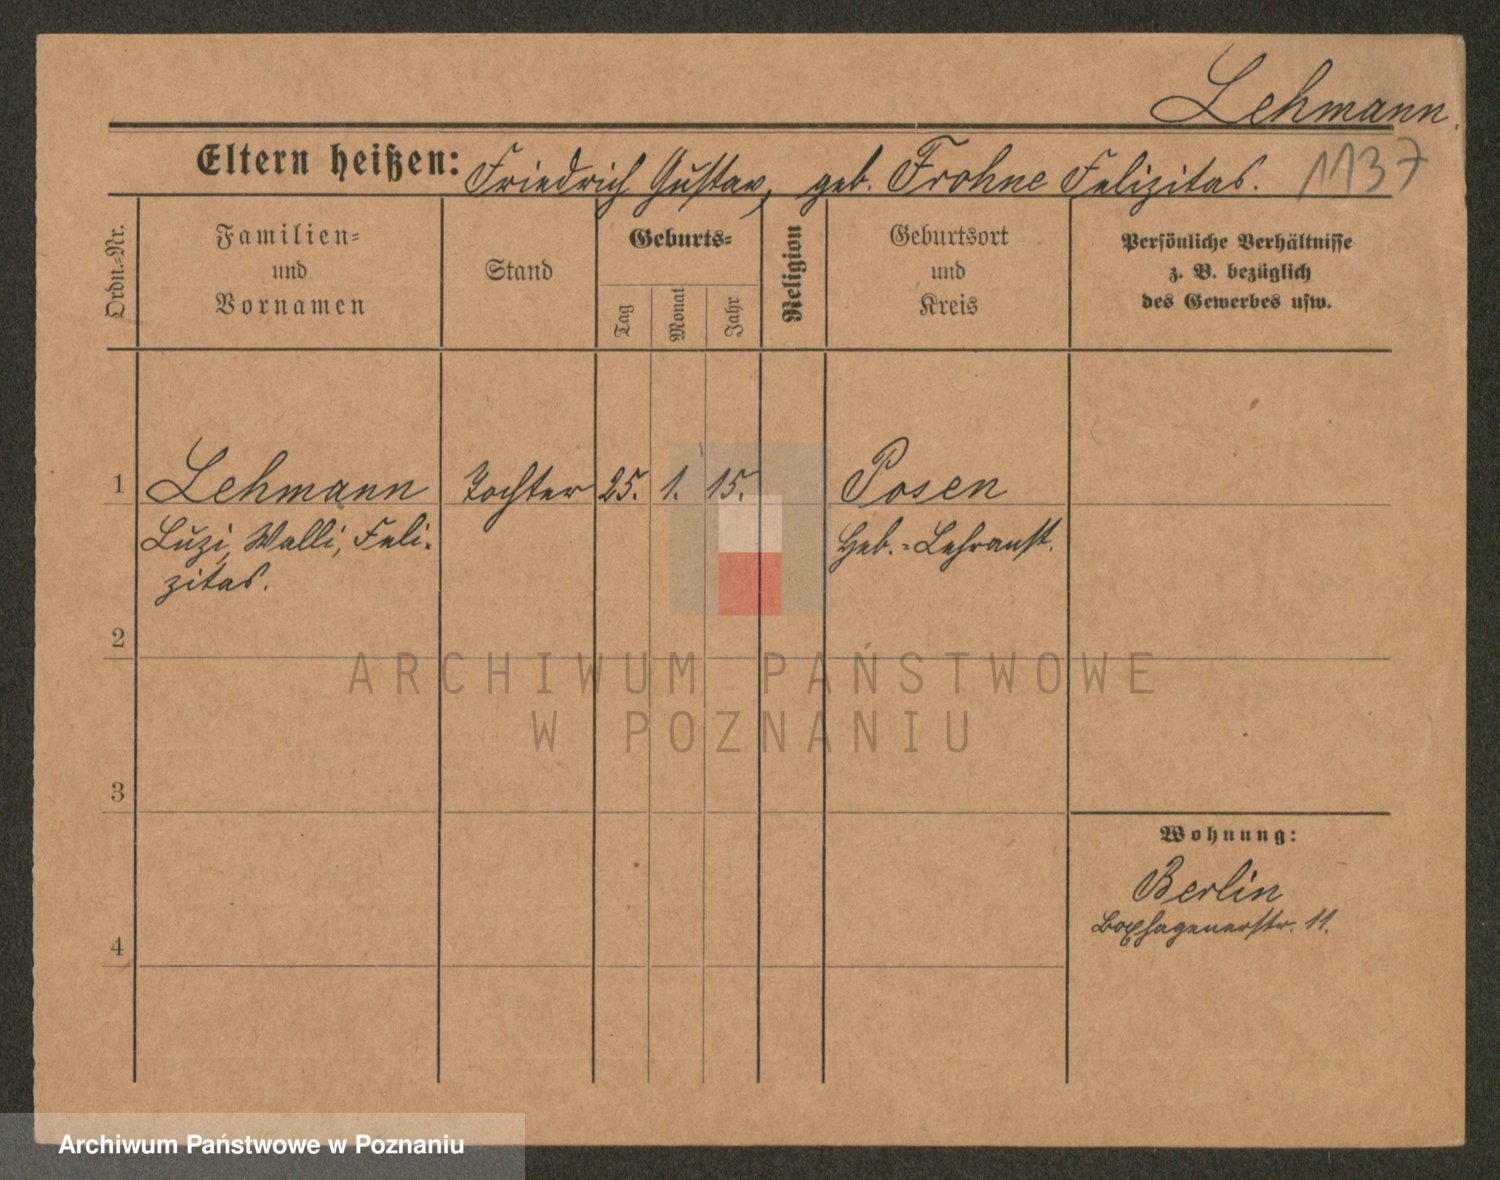 Lehmann.
Eltern heißen: Friedrich Gustav, geb. Frohne Felizitas. 1137
Ordn.=Nr.
Familien=
und
Vornamen
Stand
Geburts=
Tag
Monat
Jahr
Religion
Geburtsort
und
Kreis
Persönliche Verhältnisse
z. B. bezüglich
des Gewerbes usw.
1 Lehmann Tochter 25. 1. 15. Posen
Luzi, Walli, Feli-
zitas.
Heb.=Lehranst.
2
ARCHIWUM PAŃSTWOWE
W POZNANIU
3
Wohnung:
Berlin
Boxhagenerstr. 11.
4
Archiwum Państwowe w Poznaniu